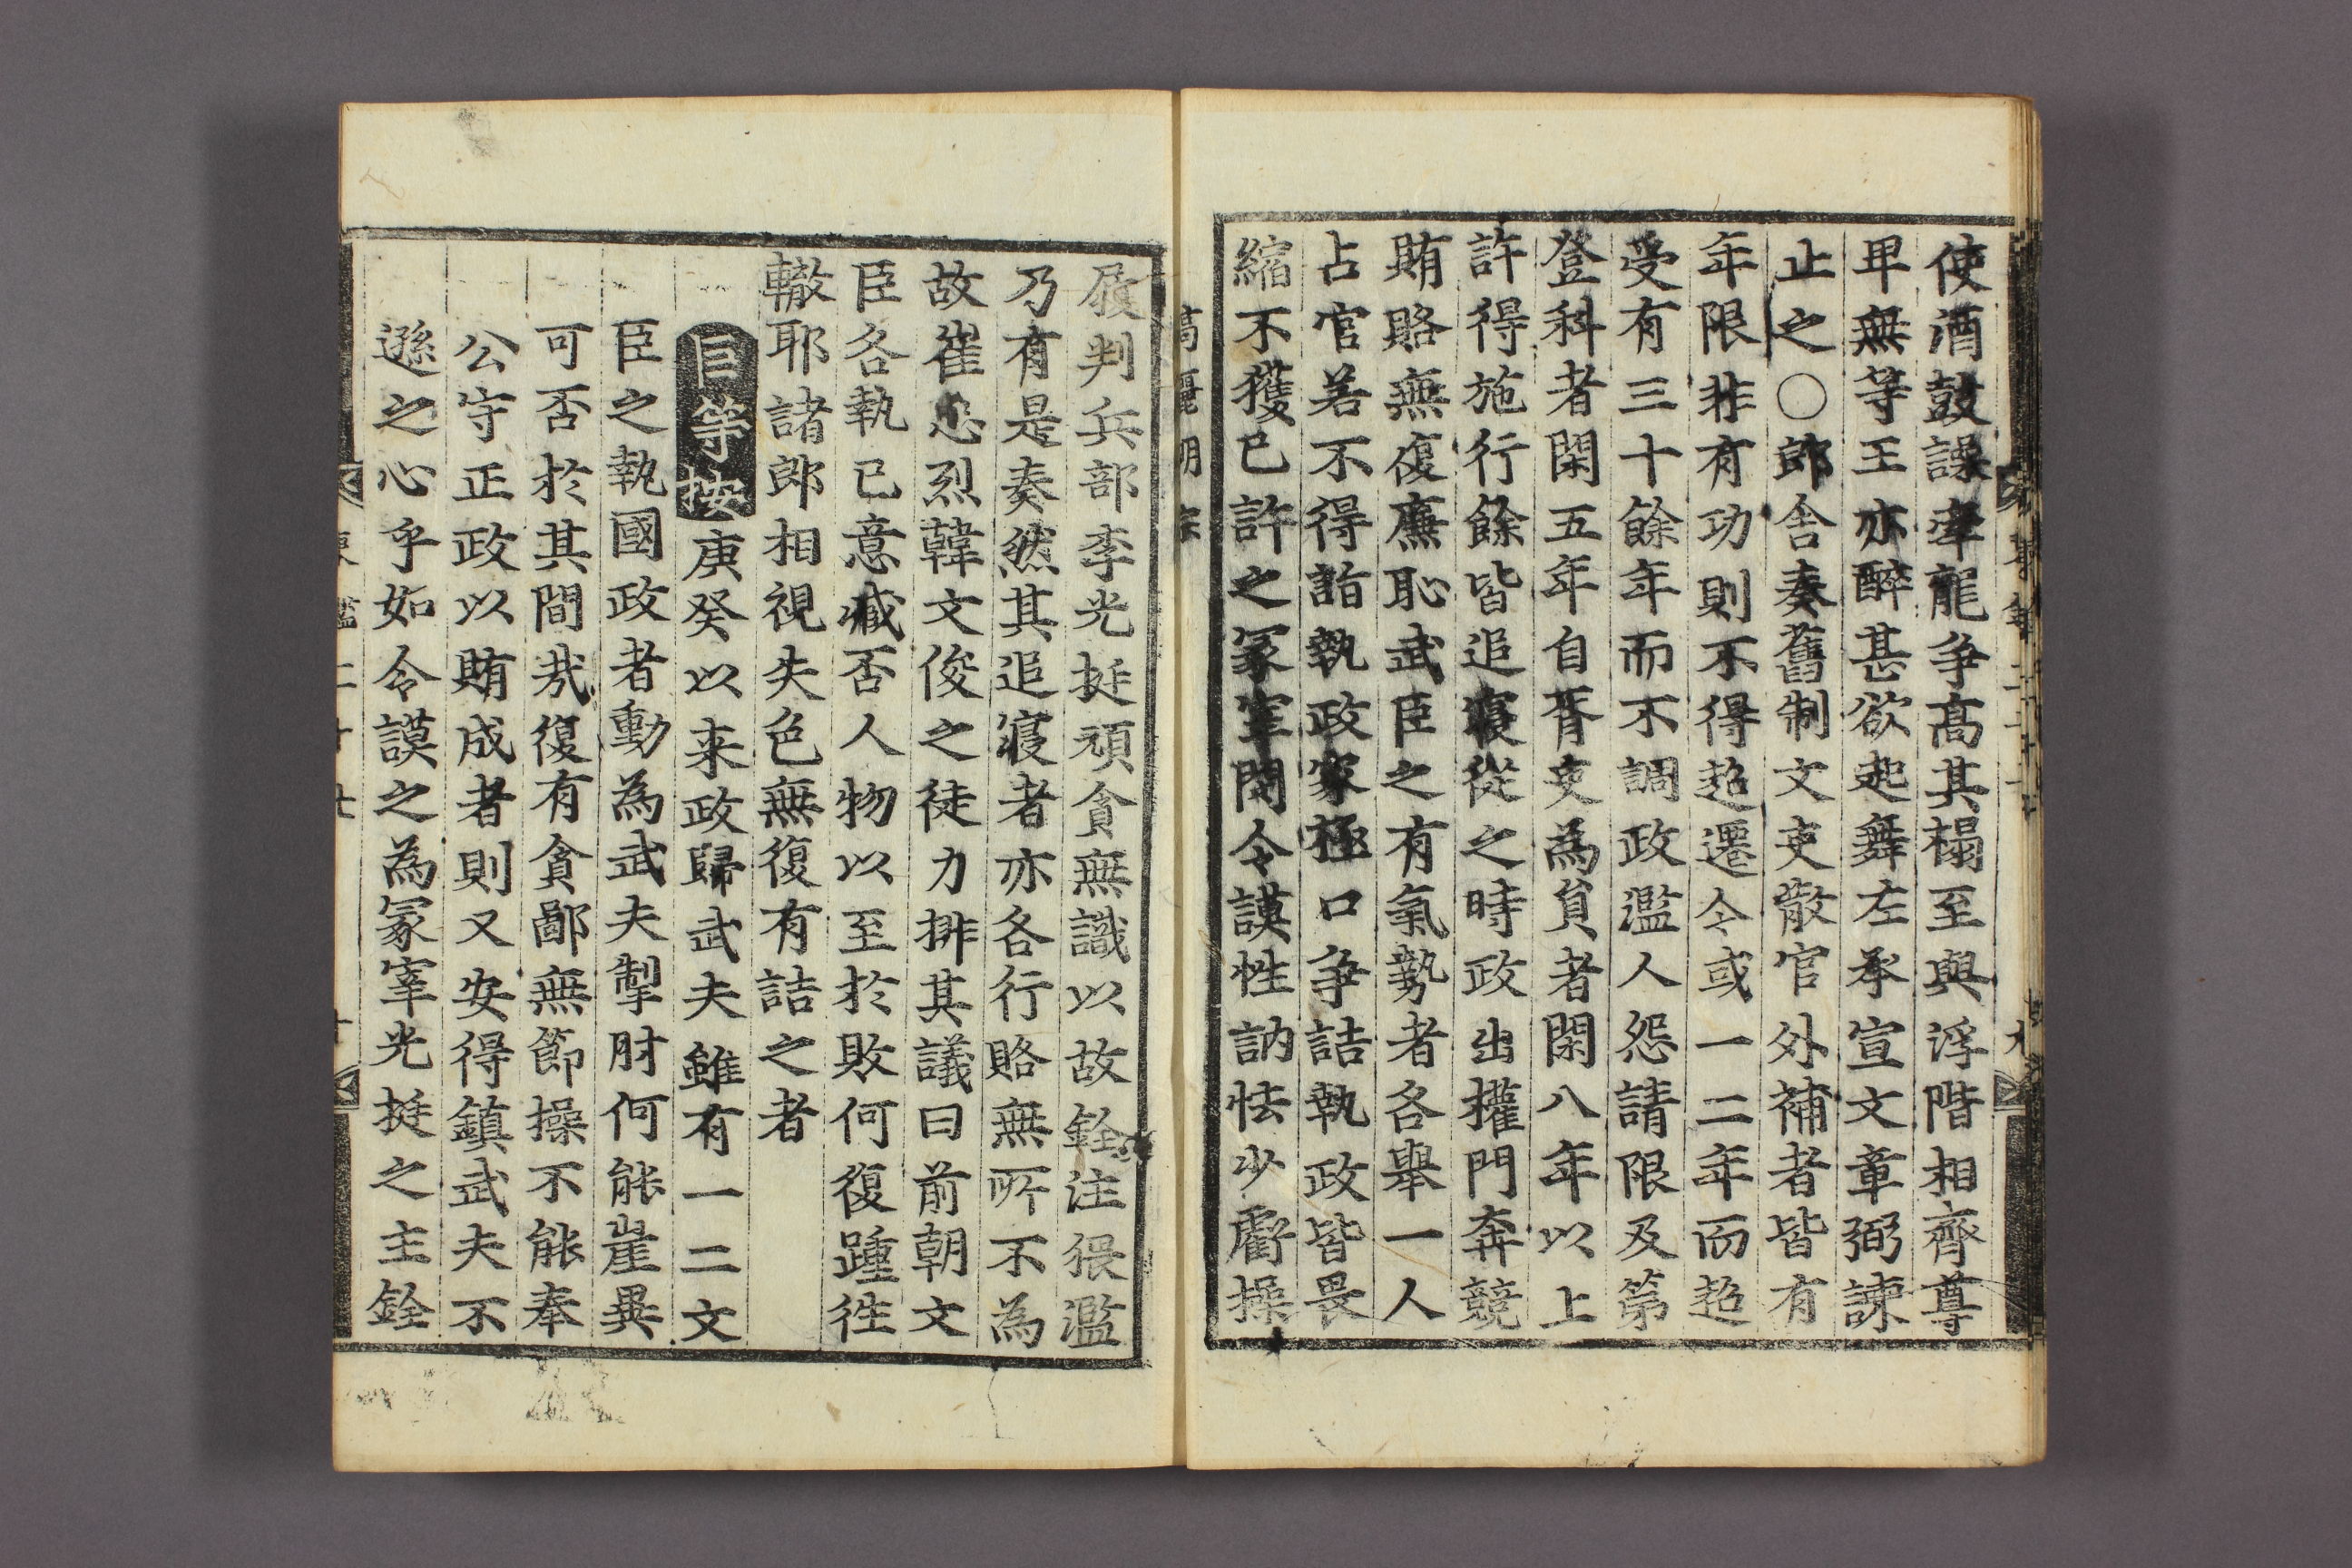 使酒鼓譟牽龍争高其榻至與浮階相齊尊
卑無等王亦醉甚欲起舞左承宣文章弼諫
止之○郎舍奏舊制文吏散官外補者皆有
年限非有功則不得超遷今或一二年而超
受有三十餘年而不調政濫人怨請限及第
登科者閑五年自胥吏為負者閑八年以上
許得施行餘皆追寢從之時政出權門奔競
賄賂無復廉恥武臣之有氣勢者各舉一人
占官若不得詣執政家極口争詰執政皆畏
縮不獲已許之冢宰閔令謨性訥怯少廨操
履判兵部李光挺頑貪無識以故銓注猥濫
乃有是奏然其追寢者亦各行賂無所不為
故崔忠烈韓文俊之徒力排其議曰前朝文
臣各執已意臧否人物以至於敗何復踵徃
轍耶諸郎相視失色無復有詰之者
臣等按庚癸以来政歸武夫雖有一二文
臣之執國政者動為武夫掣肘何能崖異
可否於其間㢤復有貪鄙無節操不能奉
公守正政以賄成者則又安得鎮武夫不
遜之心乎如令謨之為冢宰光挺之主銓